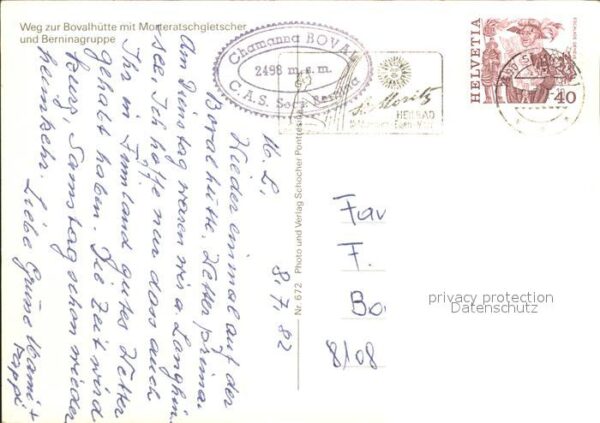 Weg zur Bovalhütte mit Morteratschgletscher
und Berninagruppe
Chamanna BOVAL
2498 m.s.m.
C.A.S. Sez. Bernina
St. Moritz
HEILBAD
HELVETIA
40
Nr. 672 Photo und Verlag Schocher Pontresina
M. L. 8.7.82
Wieder einmal auf der
Bovalhütte. Wetter prima.
Am Dienstag waren wir a. Lunghin
see. Ich hoffe nur dass auch
Ihr in Finnland gutes Wetter
gehabt haben. Die Zeit wird
kurz, Samstag schon wieder
heimkehr. Liebe Grüsse Mami +
Pappi
Fav
F.
Bo
8108
privacy protection
Datenschutz